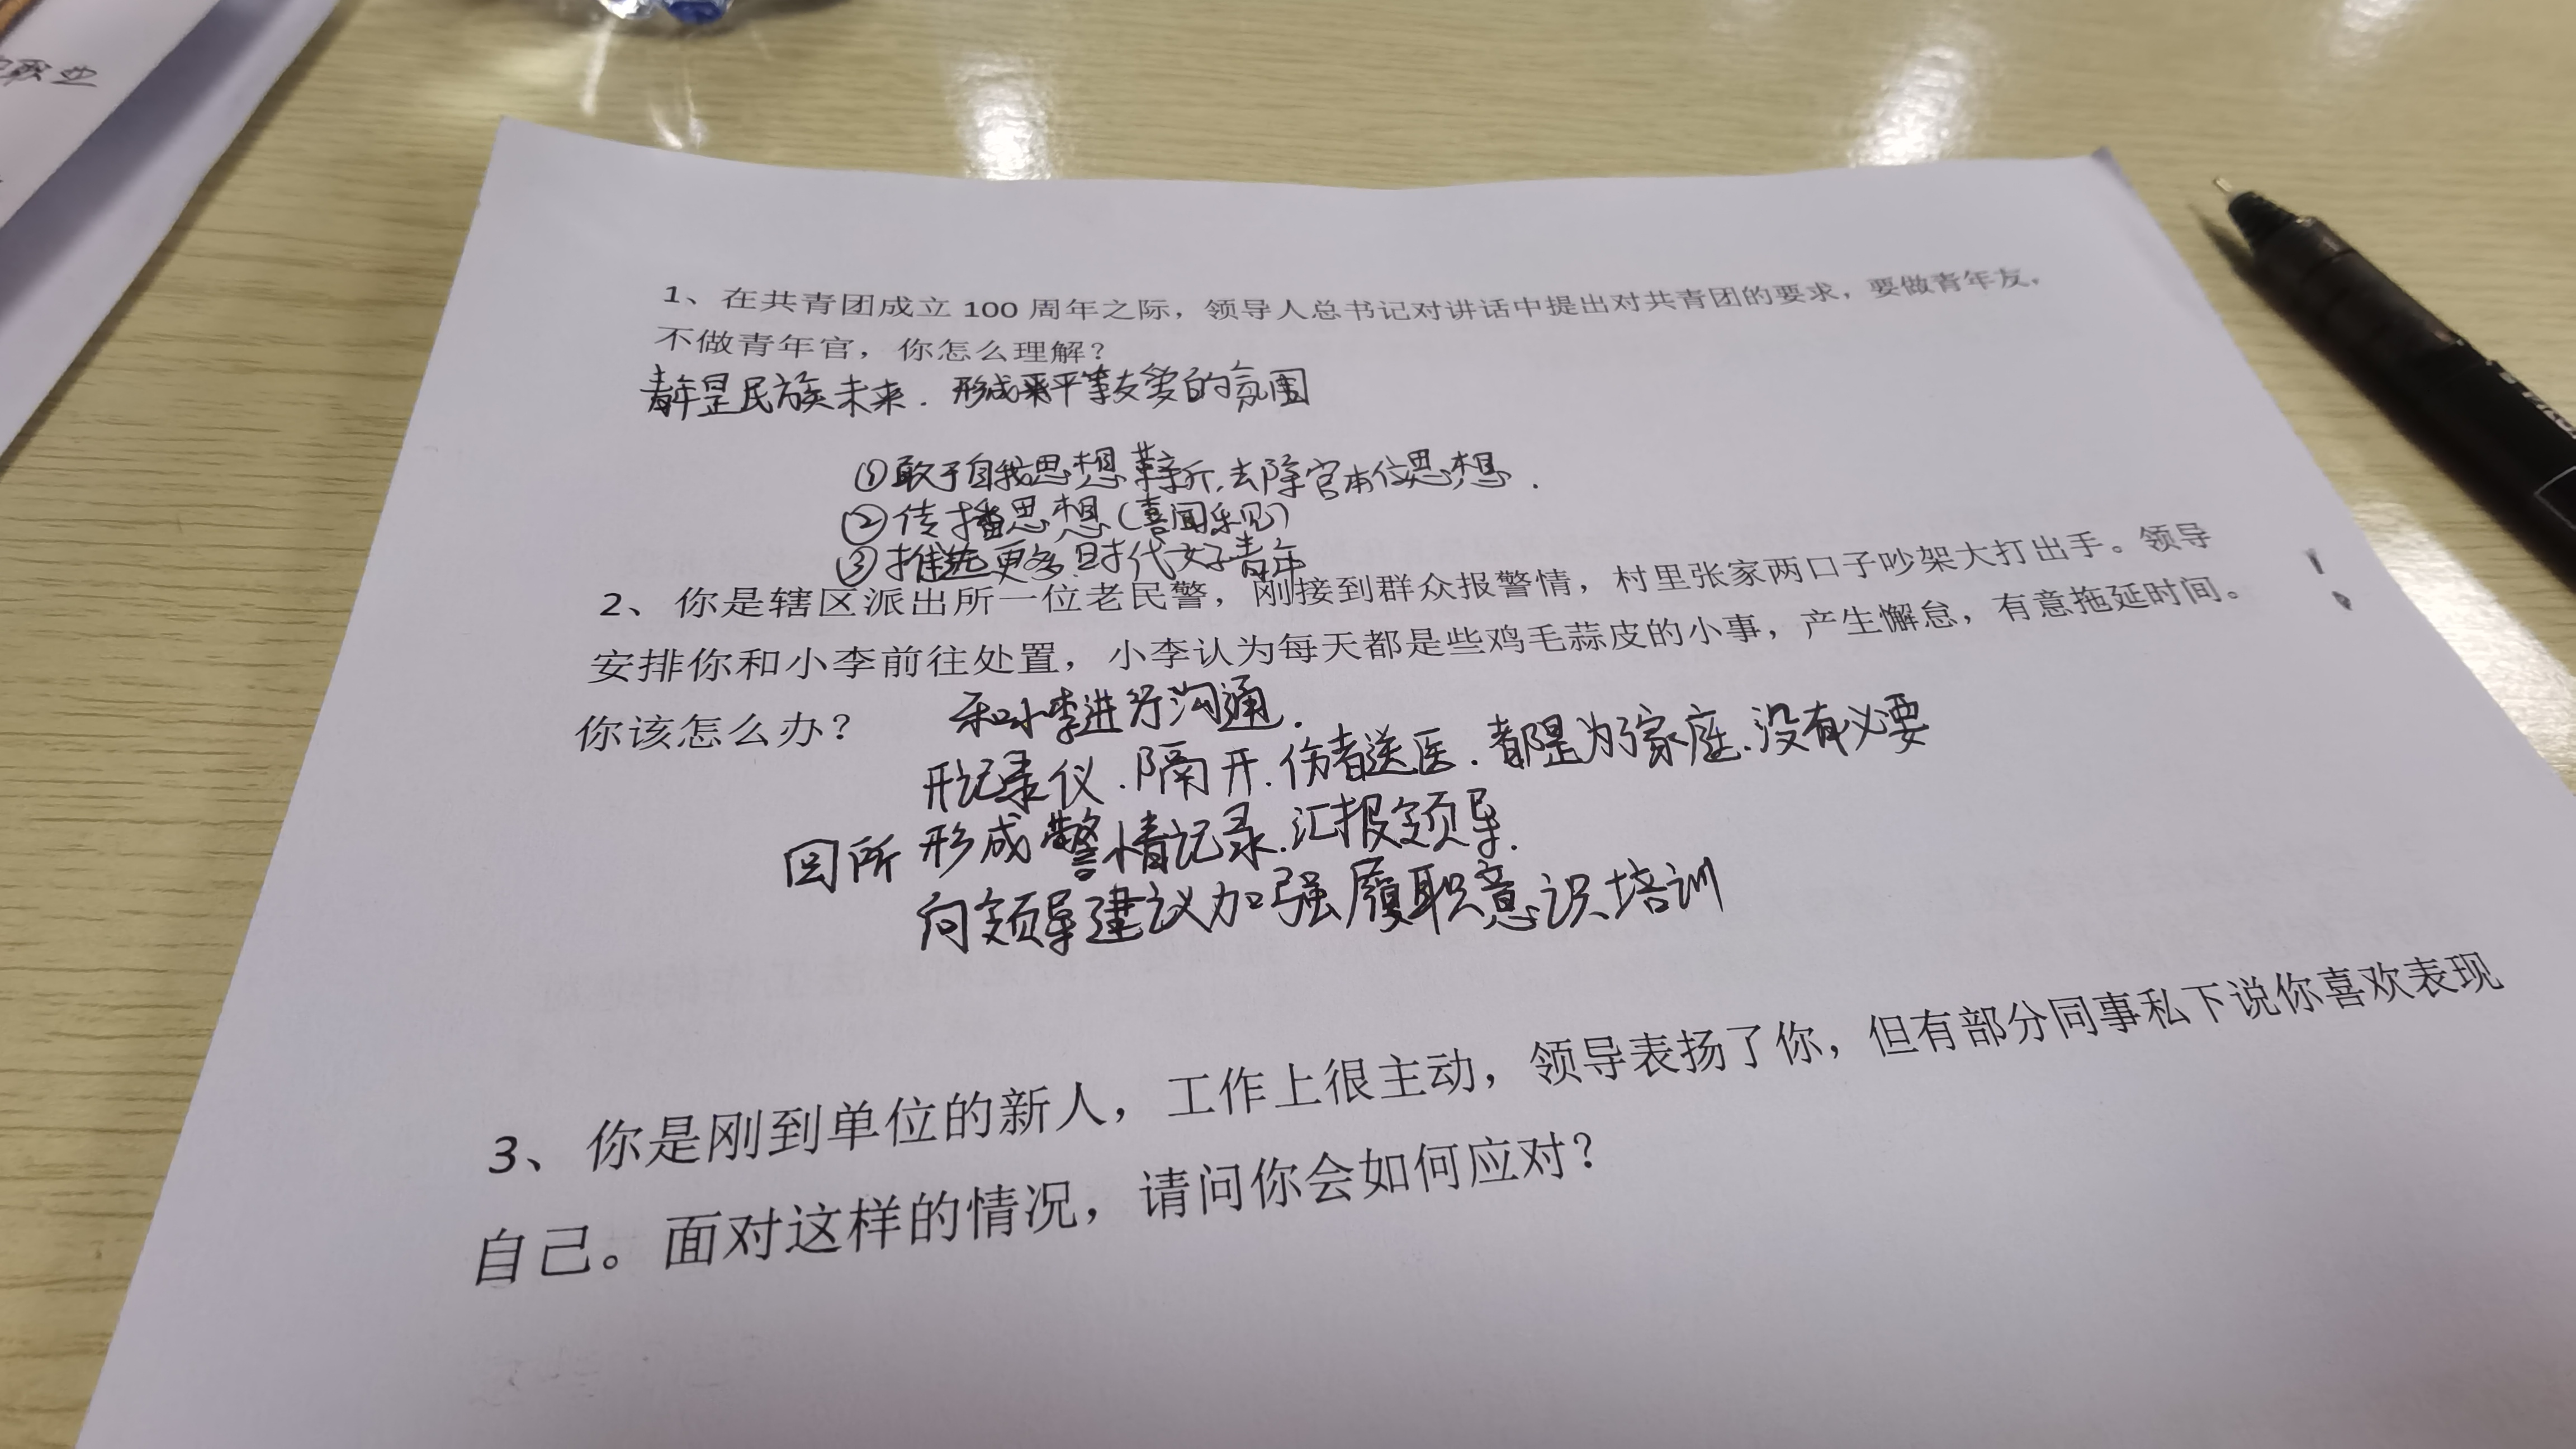 职业
1、在共青团成立 100 周年之际，领导人总书记对讲话中提出对共青团的要求，要做青年友，
不做青年官，你怎么理解？
青年是民族未来．形成平等友爱的氛围
①敢于自我思想革新，去除官本位思想．
②传播思想（喜闻乐见）
③推选更多时代好青年
2、你是辖区派出所一位老民警，刚接到群众报警情，村里张家两口子吵架大打出手。领导
安排你和小李前往处置，小李认为每天都是些鸡毛蒜皮的小事，产生懈怠，有意拖延时间。
你该怎么办？
和小李进行沟通．
开记录仪．隔开．伤者送医．都是为了家庭．没有必要
回所 形成警情记录．汇报领导．
向领导建议加强履职意识培训
3、你是刚到单位的新人，工作上很主动，领导表扬了你，但有部分同事私下说你喜欢表现
自己。面对这样的情况，请问你会如何应对？